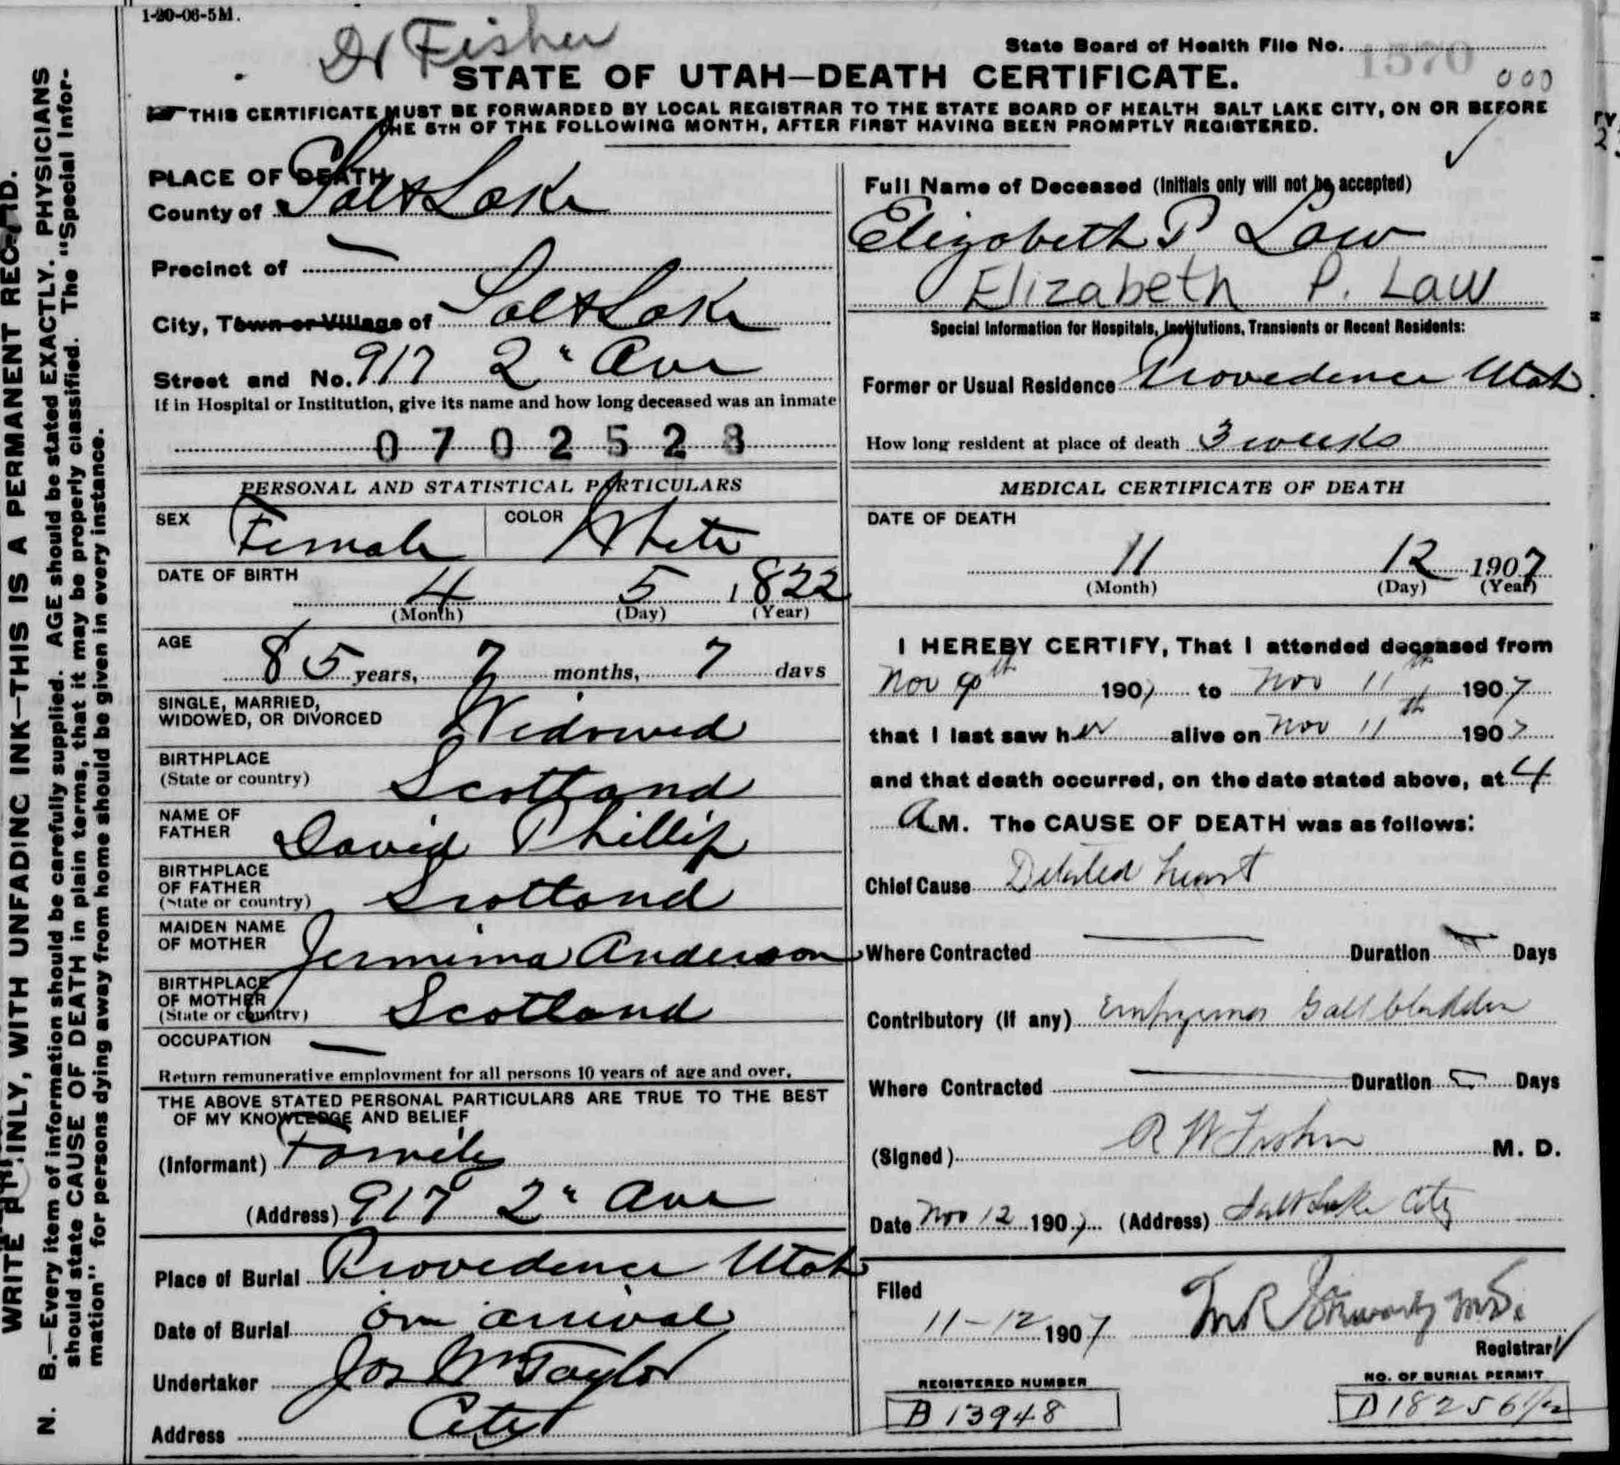 1-20-06-5M.
Dr Fisher
State Board of Health File No. 1570
000
STATE OF UTAH—DEATH CERTIFICATE.
THIS CERTIFICATE MUST BE FORWARDED BY LOCAL REGISTRAR TO THE STATE BOARD OF HEALTH SALT LAKE CITY, ON OR BEFORE
THE 5TH OF THE FOLLOWING MONTH, AFTER FIRST HAVING BEEN PROMPTLY REGISTERED.
WRITE PLAINLY, WITH UNFADING INK—THIS IS A PERMANENT RECORD.
N. B.—Every item of information should be carefully supplied. AGE should be stated EXACTLY. PHYSICIANS
should state CAUSE OF DEATH in plain terms, that it may be properly classified. The "Special Infor-
mation" for persons dying away from home should be given in every instance.
PLACE OF DEATH
County of Salt Lake
Precinct of —
City, Town or Village of Salt Lake
Street and No. 917 2" Ave
If in Hospital or Institution, give its name and how long deceased was an inmate
0702528
PERSONAL AND STATISTICAL PARTICULARS
SEX Female COLOR White
DATE OF BIRTH
4 5 1822
(Month) (Day) (Year)
AGE
85 years, 7 months, 7 days
SINGLE, MARRIED,
WIDOWED, OR DIVORCED Widowed
BIRTHPLACE
(State or country) Scotland
NAME OF
FATHER David Phillip
BIRTHPLACE
OF FATHER
(State or country) Scotland
MAIDEN NAME
OF MOTHER Jermima Anderson
BIRTHPLACE
OF MOTHER
(State or country) Scotland
OCCUPATION —
Return remunerative employment for all persons 10 years of age and over.
THE ABOVE STATED PERSONAL PARTICULARS ARE TRUE TO THE BEST
OF MY KNOWLEDGE AND BELIEF
(Informant) Family
(Address) 917 2" Ave
Place of Burial Providence Utah
Date of Burial on arrival
Undertaker Jos Wm Taylor
Address City
Full Name of Deceased (Initials only will not be accepted)
Elizabeth P Law
Elizabeth P. Law
Special Information for Hospitals, Institutions, Transients or Recent Residents:
Former or Usual Residence Providence Utah
How long resident at place of death 3 weeks
MEDICAL CERTIFICATE OF DEATH
DATE OF DEATH
11 12 1907
(Month) (Day) (Year)
I HEREBY CERTIFY, That I attended deceased from
Nov 9th 1907 to Nov 11th 1907
that I last saw her alive on Nov 11th 1907
and that death occurred, on the date stated above, at 4
A M. The CAUSE OF DEATH was as follows:
Chief Cause Dilated heart
Where Contracted — Duration — Days
Contributory (if any) Empyema Gallbladder
Where Contracted — Duration — Days
(Signed) R W Fisher M. D.
Date Nov 12 1907 (Address) Salt Lake City
Filed
11-12 1907
Registrar
REGISTERED NUMBER
B 13948
NO. OF BURIAL PERMIT
D 18256 1/2